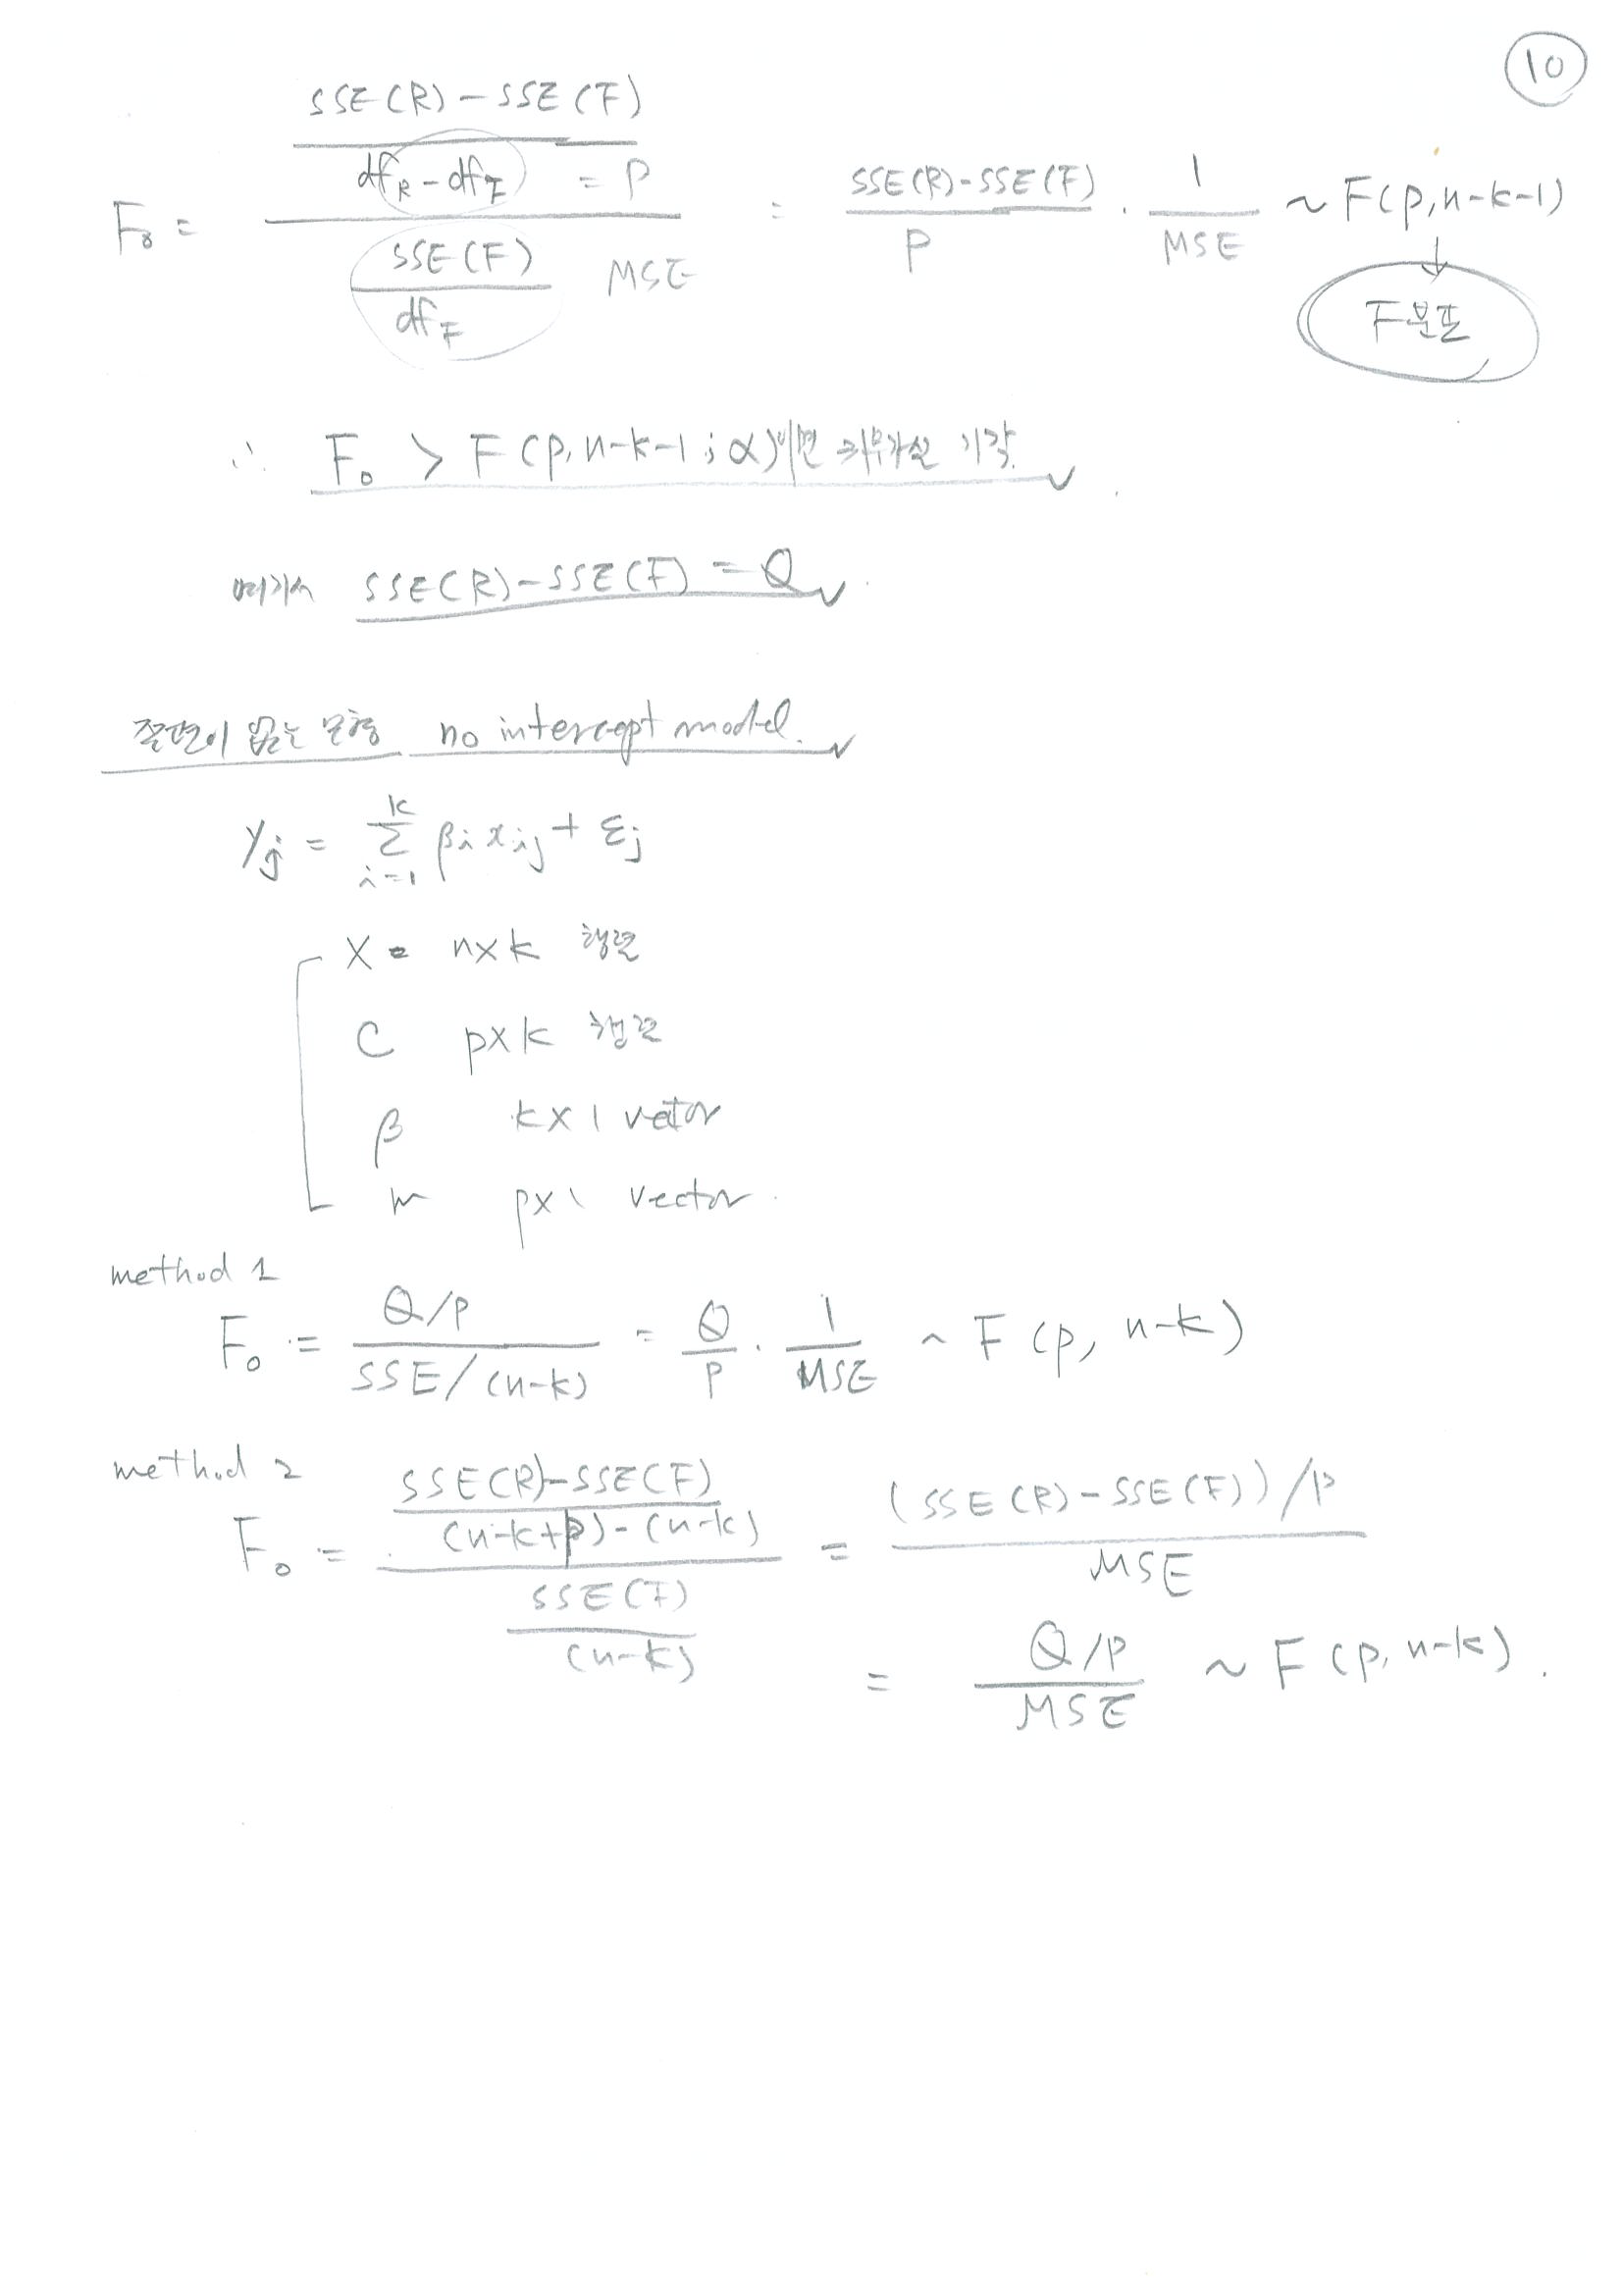 ⑩
F₀ = {(SSE(R) - SSE(F)) / (df_R - df_F) = p} / {SSE(F) / df_F} MSE = (SSE(R)-SSE(F)) / p · 1 / MSE ~ F(p, n-k-1)
↓
F분포
∴ F₀ > F(p, n-k-1; α)이면 귀무가설 기각.
여기서 SSE(R)-SSE(F) = Q
절편이 없는 모형 no intercept model.
y_j = Σ_{i=1}^{k} β_i x_{ij} + ε_j
X = n×k 행렬
C p×k 행렬
β k×1 vetor
m p×1 vector.
method 1
F₀ = (Q/p) / (SSE/(n-k)) = Q/p · 1/MSE ~ F(p, n-k)
method 2
F₀ = {(SSE(R)-SSE(F)) / ((n-k+p)-(n-k))} / {SSE(F) / (n-k)} = (SSE(R)-SSE(F))/p / MSE
= (Q/p) / MSE ~ F(p, n-k).